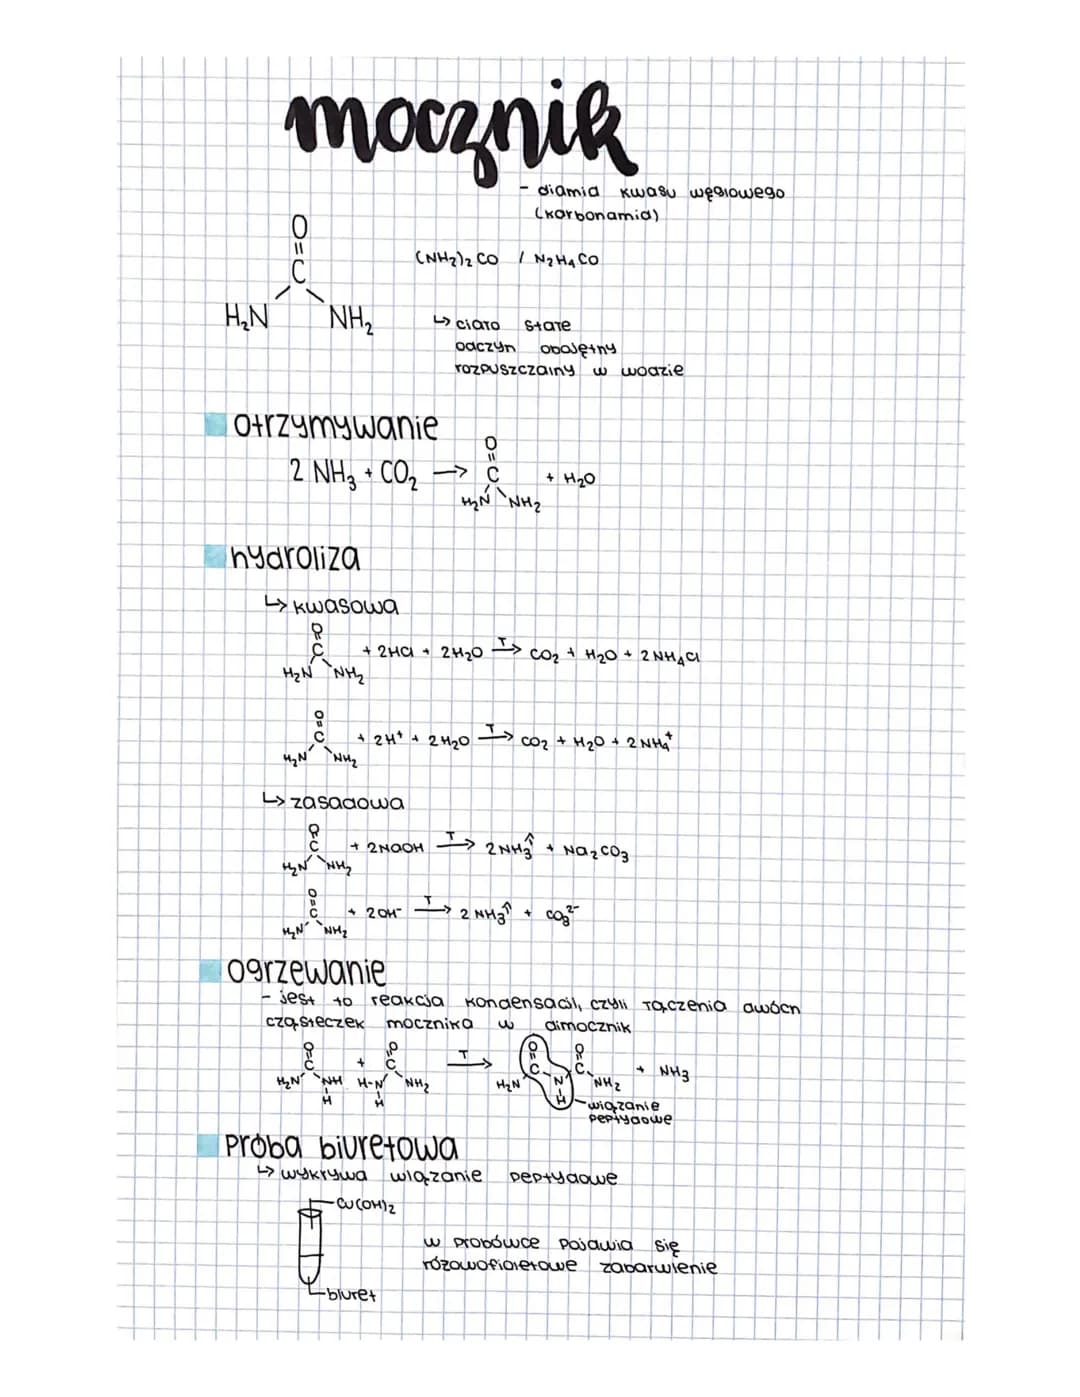 mocznik
- diamid kwasu węglowego
(karbonamid)
O
||
C
H₂N NH₂
(NH₂)₂ CO / N₂H₄CO
↳ ciało stałe
odczyn obojętny
rozpuszczalny w wodzie
otrzymywanie
O
||
2 NH₃ + CO₂ → C + H₂O
H₂N NH₂
hydroliza
↳ kwasowa
O
||
C + 2HCl + 2H₂O T→ CO₂ + H₂O + 2NH₄Cl
H₂N NH₂
O
||
C + 2H⁺ + 2H₂O T→ CO₂ + H₂O + 2NH₄⁺
H₂N NH₂
↳ zasadowa
O
||
C + 2NaOH T→ 2NH₃↑ + Na₂CO₃
H₂N NH₂
O
||
C + 2OH⁻ T→ 2NH₃↑ + CO₃²⁻
H₂N NH₂
ogrzewanie
- jest to reakcja kondensacji, czyli łączenia dwóch
cząsteczek mocznika w dimocznik
O O O O
|| || || ||
C + C T→ C C + NH₃
H₂N NH H-N NH₂ H₂N N NH₂
H H H
wiązanie
peptydowe
próba biuretowa
↳ wykrywa wiązanie peptydowe
Cu(OH)₂
w probówce pojawia się
różowofioletowe zabarwienie
biuret